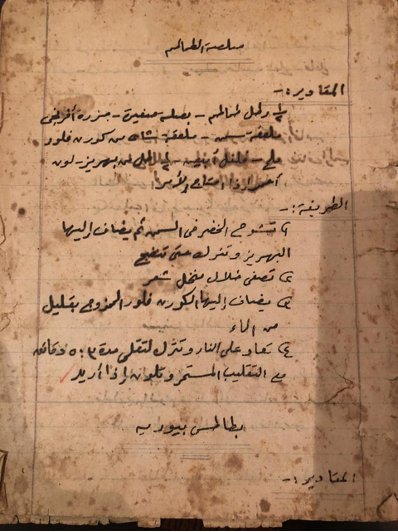 صلصة الطماطم
المقادير:-
½ رطل طماطم - بصلة صغيرة - جزرة أفرنجى
ملعقة سمن - ملعقة شاى من كورن فلور
ملح - فلفل أبيض - ¼ رطل من بهريز - لون
أحمر إذا احتاج الأمر
الطريقة:-
١ـ تشوح الخضر فى السمن ثم يضاف إليها
البهريز وتترك حتى تنضج
٢ـ تصفى خلال منخل شعر
٣ـ يضاف إليها الكورن فلور الممزوج بقليل
من الماء
٤ـ تعاد على النار وتترك لتغلى مدة ٣ : ٥ دقائق
مع التقليب المستمر وتلون إذا أريد
بطاطس بيوريه
المقادير:-